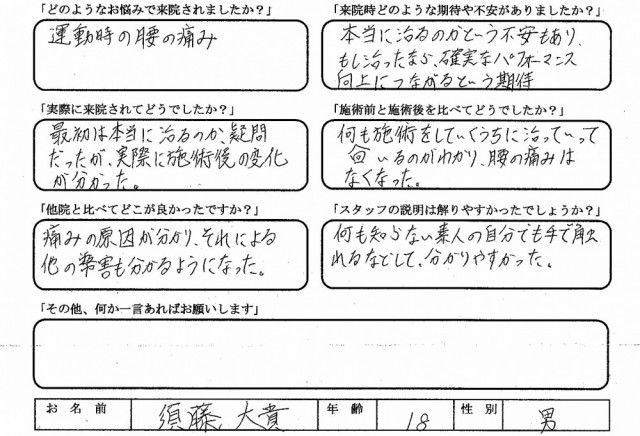 「どのようなお悩みで来院されましたか？」
運動時の腰の痛み
「来院時どのような期待や不安がありましたか？」
本当に治るのかという不安もあり、
もし治ったなら、確実なパフォーマンス
向上につながるという期待
「実際に来院されてどうでしたか？」
最初は本当に治るのか、疑問
だったが、実際に施術後の変化
が分かった。
「施術前と施術後を比べてどうでしたか？」
何も施術をしていくうちに治っていって
いるのがわかり、腰の痛みは
なくなった。
「他院と比べてどこが良かったですか？」
痛みの原因が分かり、それによる
他の弊害も分かるようになった。
「スタッフの説明は解りやすかったでしょうか？」
何も知らない素人の自分でも手で触
れるなどして、分かりやすかった。
「その他、何か一言あればお願いします」
お名前 須藤 大貴 年齢 18 性別 男